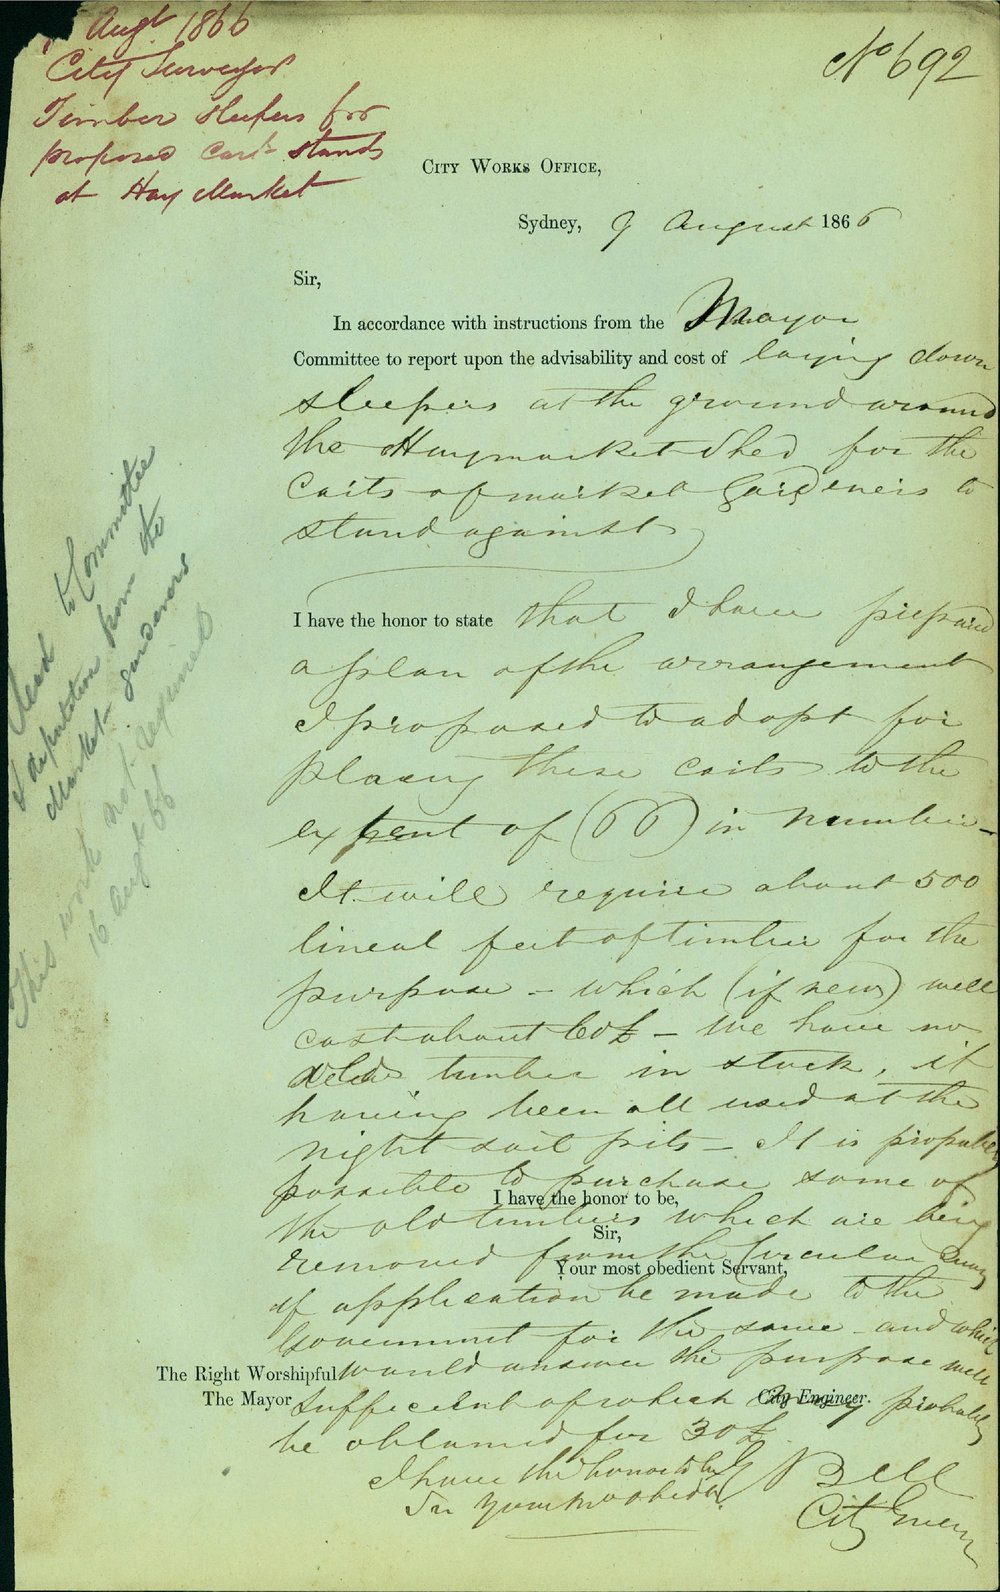 Augt 1866
City Surveyor
Timber sleepers for
proposed cart stands
at Hay Market
No 692
CITY WORKS OFFICE,
Sydney, 9 August 1866
Sir,
In accordance with instructions from the Mayor
Committee to report upon the advisability and cost of laying down
sleepers at the ground around
the Haymarket Shed for the
carts of market Gardeners to
stand against
I have the honor to state that I have prepared
a plan of the arrangement
I proposed to adopt for
placing these carts to the
extent of (66) in number -
It will require about 500
lineal feet of timber for the
purpose - which (if new) will
cost about 60£ - We have no
old timber in stock, it
having been all used at the
night soil pits - It is probably
possible to purchase some of
I have the honor to be,
the old timbers which are being
Sir,
removed from the Circular Quay
Your most obedient Servant,
if application be made to the
Government for the same - and which
The Right Worshipful would answer the purpose well
The Mayor sufficient of which may probably
City Engineer.
be obtained for 30£
I have the honor to be
Sir Your most obedt
Bell
City Engineer
Read to Committee
& deputation from the
Market gardeners
This work not required
16 Augt 66